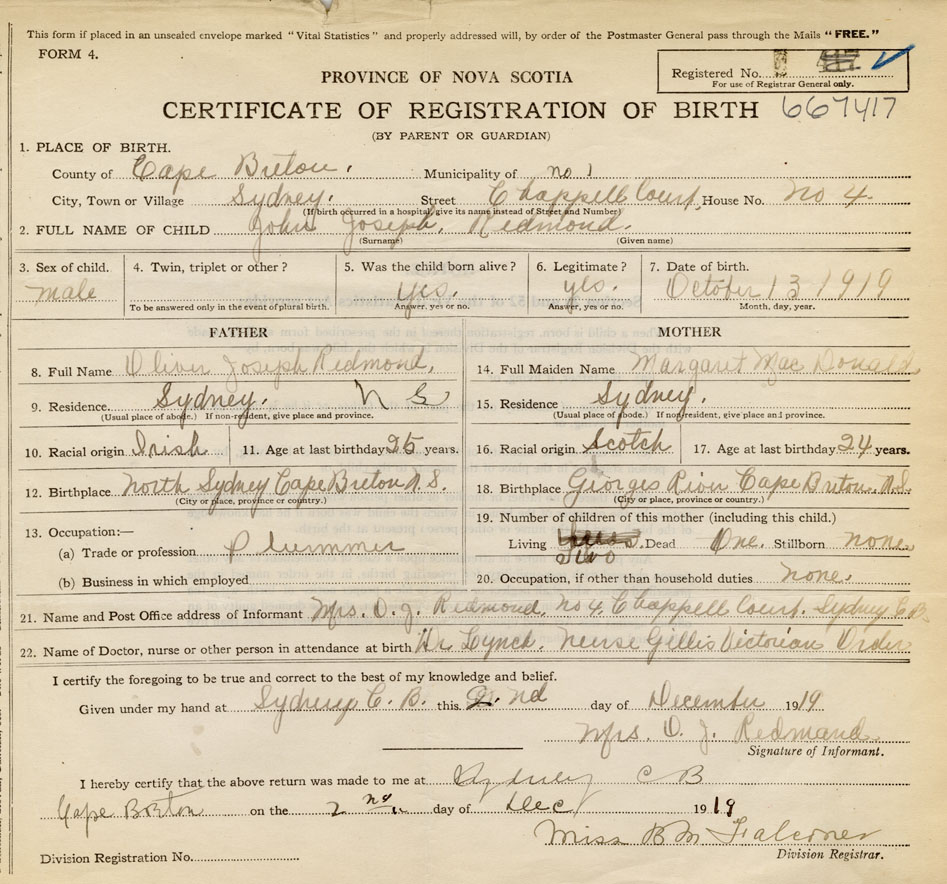 This form if placed in an unsealed envelope marked "Vital Statistics" and properly addressed will, by order of the Postmaster General pass through the Mails "FREE."
FORM 4.
Registered No.
For use of Registrar General only.
PROVINCE OF NOVA SCOTIA
CERTIFICATE OF REGISTRATION OF BIRTH 667417
(BY PARENT OR GUARDIAN)
1. PLACE OF BIRTH.
County of Cape Breton. Municipality of no 1
City, Town or Village Sydney. Street Chappell Court. House No. No 4.
(If birth occurred in a hospital, give its name instead of Street and Number)
2. FULL NAME OF CHILD John Joseph. Redmond.
(Surname) (Given name)
3. Sex of child. 4. Twin, triplet or other? 5. Was the child born alive? 6. Legitimate? 7. Date of birth.
male yes. yes. October 13 1919
To be answered only in the event of plural birth. Answer, yes or no. Answer, yes or no. Month, day, year.
FATHER
8. Full Name Oliver Joseph Redmond,
9. Residence Sydney. N S
(Usual place of abode.) If non-resident, give place and province.
10. Racial origin Irish 11. Age at last birthday 25 years.
12. Birthplace North Sydney Cape Breton N.S.
(City or place, province or country.)
13. Occupation:—
(a) Trade or profession Plummer
(b) Business in which employed
MOTHER
14. Full Maiden Name Margaret Mac Donald
15. Residence Sydney.
(Usual place of abode.) If non-resident, give place and province.
16. Racial origin Scotch 17. Age at last birthday 24 years.
18. Birthplace Georges River Cape Breton. N.S.
(City or place, province or country.)
19. Number of children of this mother (including this child.)
Living Two Dead One. Stillborn none.
20. Occupation, if other than household duties none.
21. Name and Post Office address of Informant Mrs. O. J. Redmond. No 4. Chappell Court. Sydney C.B.
22. Name of Doctor, nurse or other person in attendance at birth Dr Lynch. Nurse Gillis Victorian Order
I certify the foregoing to be true and correct to the best of my knowledge and belief.
Given under my hand at Sydney C. B. this 2nd day of December 1919
Mrs. O. J. Redmond
Signature of Informant.
I hereby certify that the above return was made to me at Sydney C B
Cape Breton on the 2nd day of Dec 1919
Miss B M Falconer
Division Registration No. Division Registrar.